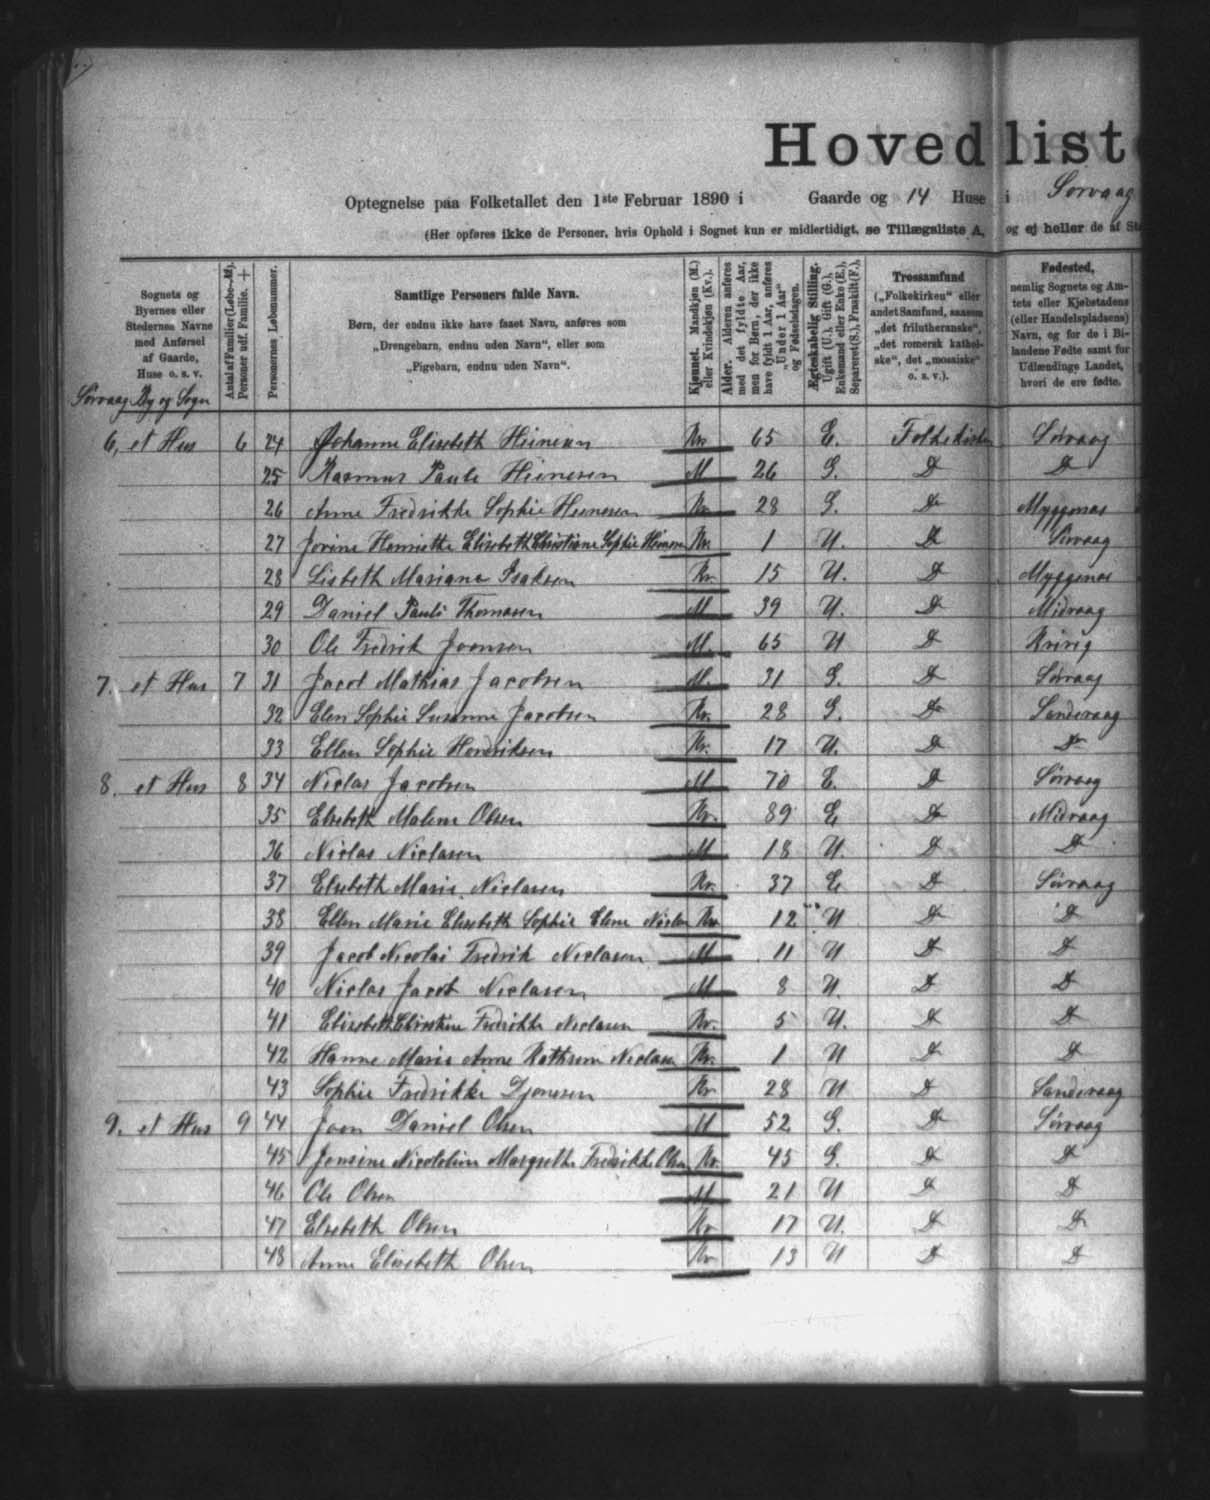 Hovedliste
Optegnelse paa Folketallet den 1ste Februar 1890 i Gaarde og 14 Huse i Sørvaag
(Her opføres ikke de Personer, hvis Ophold i Sognet kun er midlertidigt, se Tillægsliste A, og ej heller de af
Sognets og Byernes eller Stedernes Navne med Anførsel af Gaarde, Huse o. s. v.
Antal af Familier (Løbe-№).
Personer udf. Familie. +
Personernes Løbenummer.
Samtlige Personers fulde Navn.
Børn, der endnu ikke have faaet Navn, anføres som
„Drengebarn, endnu uden Navn“, eller som
„Pigebarn, endnu uden Navn“.
Kjønnet. Mandkjøn (M.) eller Kvindekjøn (Kv.).
Alder. Alderen anføres med det fyldte Aar, men for Børn, der ikke have fyldt 1 Aar, anføres „Under 1 Aar“ og Fødselsdagen.
Ægteskabelig Stilling. Ugift (U.), Gift (G.), Enkemand eller Enke (E.), Separeret (S.), Fraskilt (F.).
Trossamfund („Folkekirken“ eller andet Samfund, saasom „det frilutheranske“, „det romersk katholske“, det „mosaiske“ o. s. v.).
Fødested, nemlig Sognets og Amtets eller Kjøbstadens (eller Handelspladsens) Navn, og for de i Bilandene Fødte samt for Udlændinge Landet, hvori de ere fødte.
Sørvaag By og Sogn
6, et Hus 6 24 Johanne Elisebeth Heinesen Kv. 65 E. Folkekirken Sørvaag
25 Rasmus Pauli Heinesen M 26 G. D D
26 Anne Fredrikke Sophie Heinesen Kv. 28 G. D Myggenæs
27 Jorine Henriette Elisebeth Christiane Sophie Heinesen Kv. 1 U. D Sørvaag
28 Lisbeth Mariane Isaksen Kv. 15 U. D Myggenæs
29 Daniel Pauli Thomasen M 39 U. D Midvaag
30 Ole Fredrik Joensen M. 65 U D Kvivig
7. et Hus 7 31 Jacob Mathias Jacobsen M. 31 G. D Sørvaag
32 Elen Sophie Susanne Jacobsen Kv. 28 G. D Sandevaag
33 Ellen Sophie Hendriksen Kv. 17 U. D D
8. et Hus 8 34 Niclas Jacobsen M 70 E. D Sørvaag
35 Elsebeth Malene Olsen Kv. 89 E D Midvaag
36 Niclas Niclasen M 18 U. D D
37 Elsebeth Marie Niclasen Kv. 37 E D Sørvaag
38 Ellen Marie Elisebeth Sophie Elene Niclasen Kv 12 U D D
39 Jacob Nicolai Fredrik Niclasen M 11 U D D
40 Niclas Jacob Niclasen M 8 U. D D
41 Elisebeth Christine Fredrikke Niclasen Kv. 5 U. D D
42 Hanne Marie Anne Kathrine Niclasen Kv. 1 U D D
43 Sophie Fredrikke Djonesen Kv 28 U D Sandevaag
9. et Hus 9 44 Joen Daniel Olsen M 52 G. D Sørvaag
45 Margrethe Fredrikke Olsen Kv. 45 G. D D
46 Ole Olsen M 21 U D D
47 Elsebeth Olsen Kv 17 U. D D
48 Anne Elisebeth Olsen Kv 13 U D D